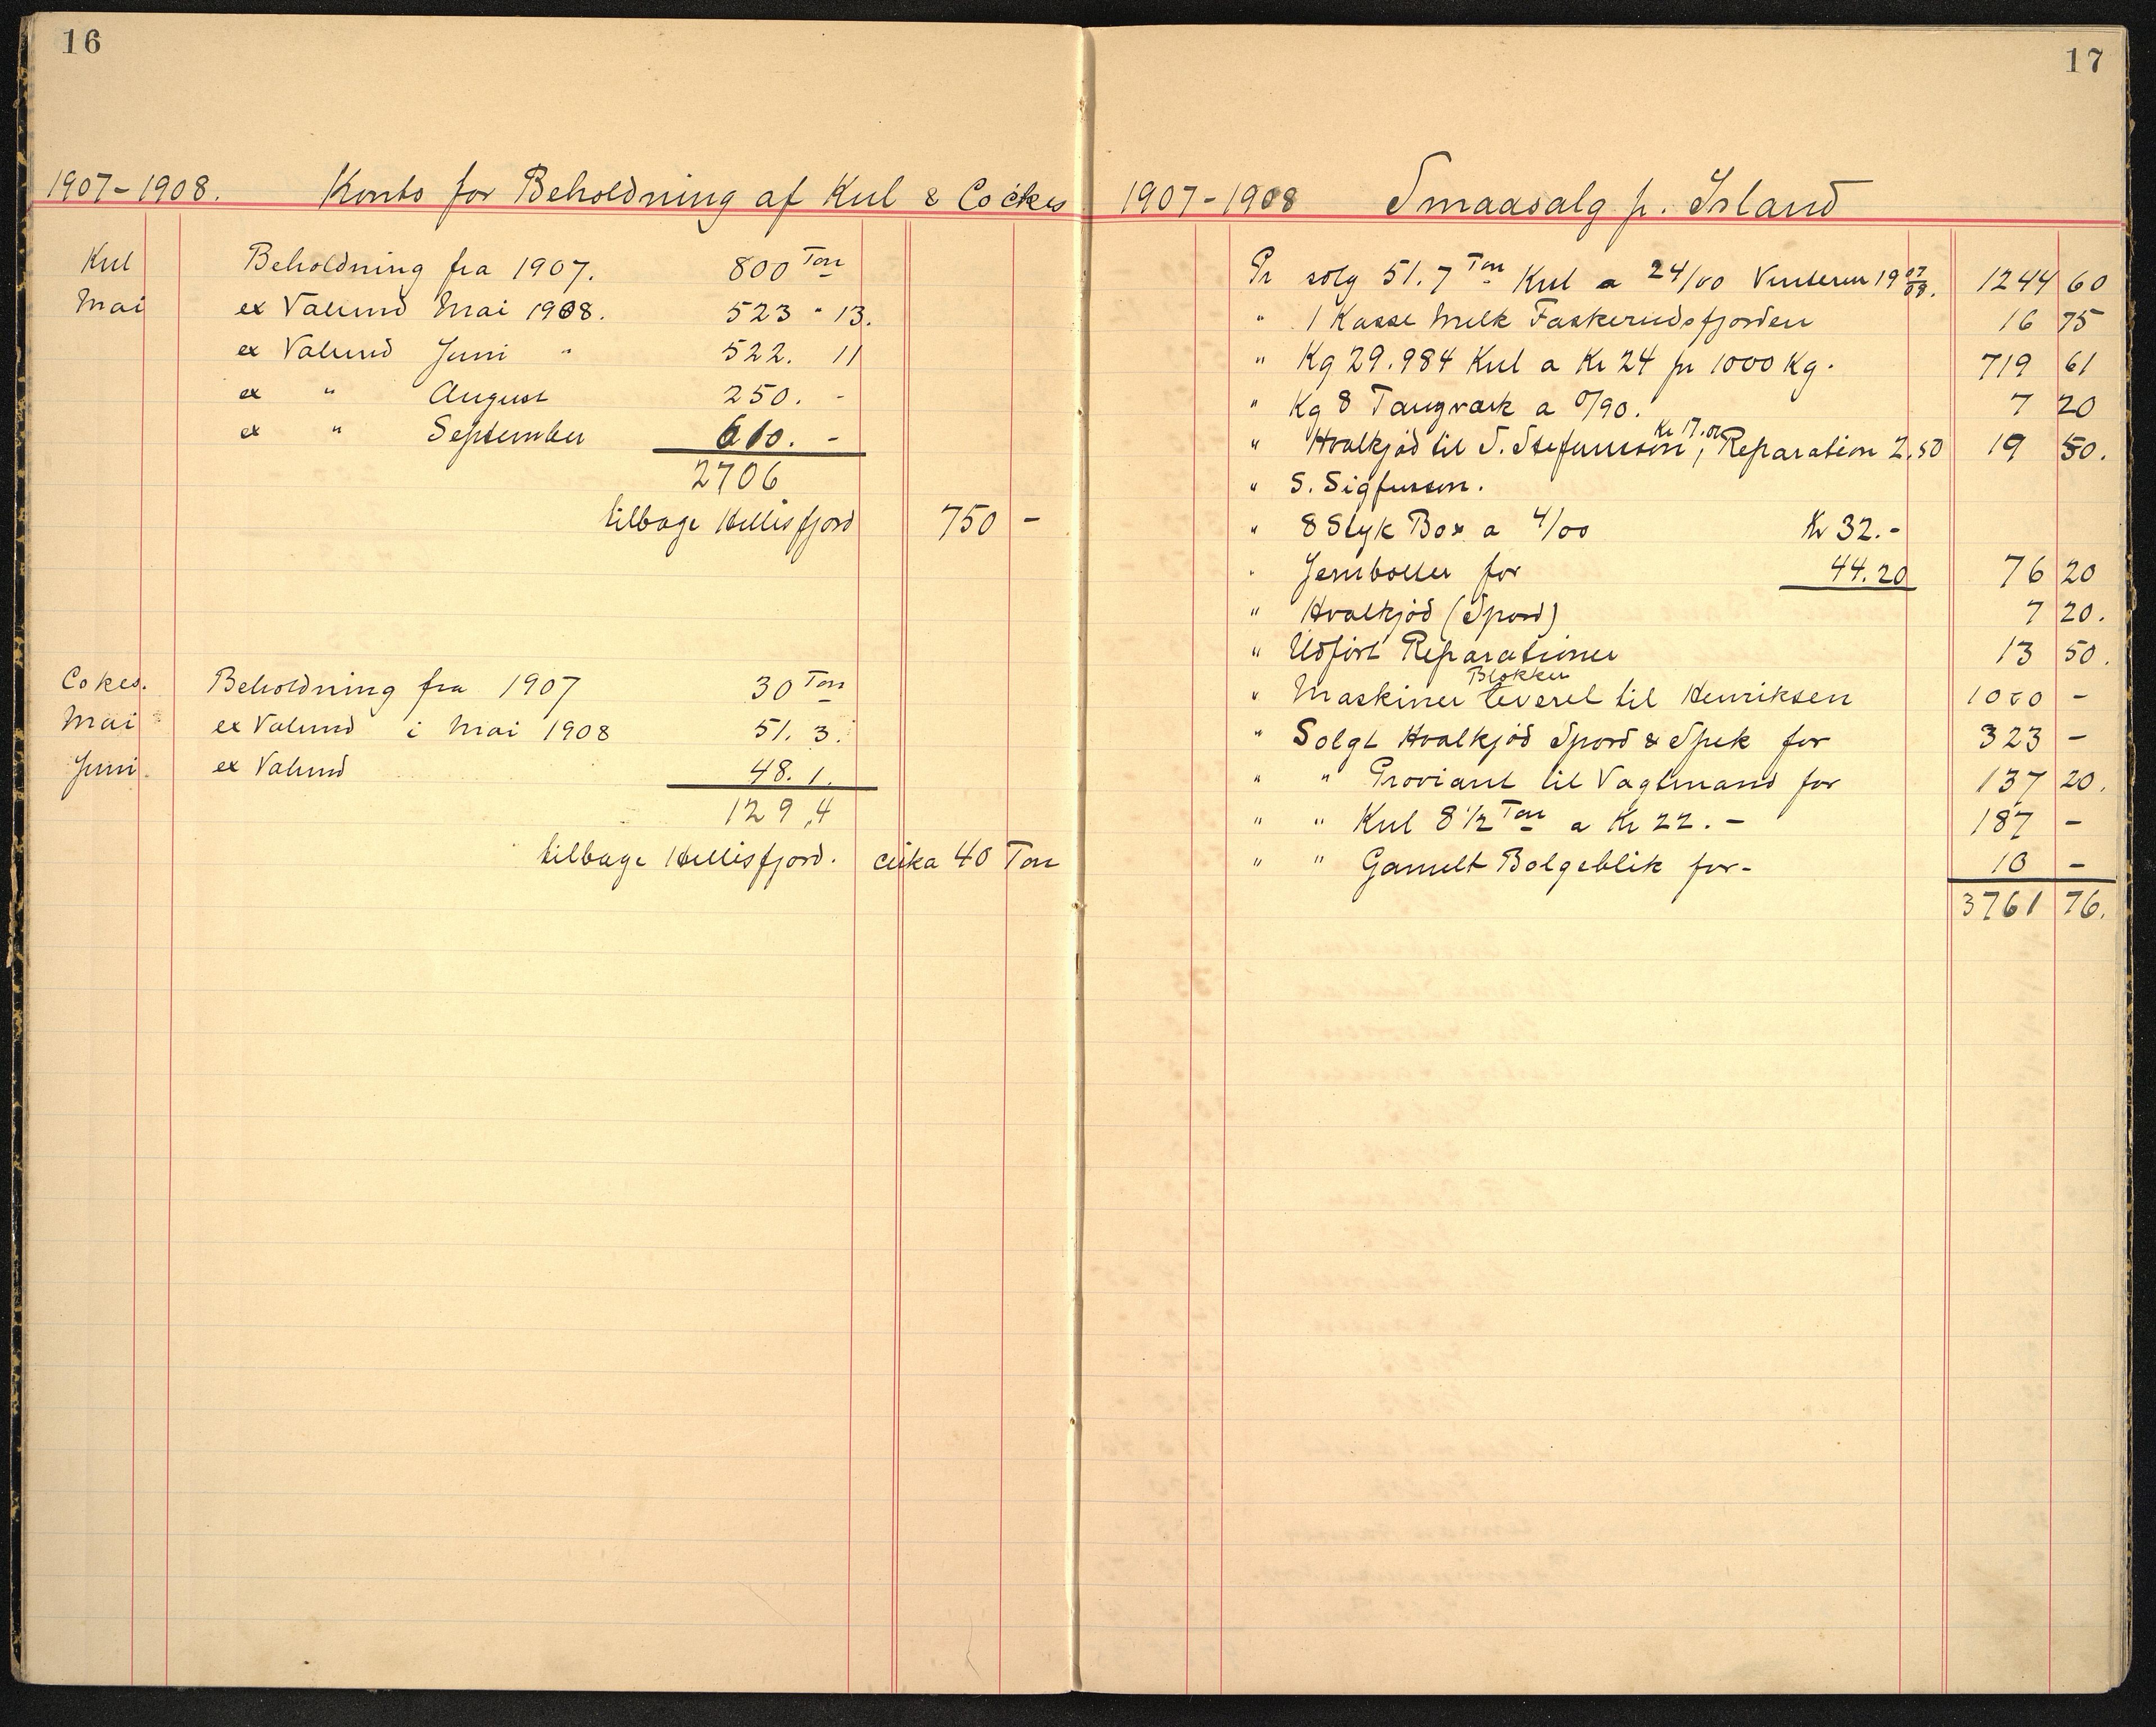 16
1907-1908. Konto for Beholdning af Kul & Cockes
Kul Beholdning fra 1907. 800 Ton
Mai ex Valund Mai 1908. 523 " 13.
ex Valund Juni " 522. 11
ex " August 250. -
ex " September 610. -
2706
tilbage Hellisfjord 750 -
Cokes. Beholdning fra 1907 30 Ton
Mai ex Valund i Mai 1908 51. 3.
Juni. ex Valund 48. 1.
129,4
tilbage Hellisfjord. cirka 40 Ton
17
1907-1908 Smaasalg p. Island
Pr solg 51.7 Ton Kul a 24/00 Vinteren 1907/08. 1244 60
" 1 Kasse Melk Faskerudsfjorden 16 75
" Kg 29.984 Kul a Kr 24 pr 1000 Kg. 719 61
" Kg 8 Tangvark a 0/90. 7 20
Kr 17.00
" Hvalkjød til S. Stefansson, Reparation 2.50 19 50.
" S. Sigfusson.
" 8 Styk Box a 4/00 Kr 32.-
" Jernbolter for 44.20 76 20
" Hvalkjød (Spord) 7 20.
" Udført Reparationer 13 50.
Blokker
" Maskiner leveret til Henriksen 1000 -
" Solgt Hvalkjød Spord & Spek for 323 -
" " Proviant til Vagtmand for 137 20.
" " Kul 8 1/2 Ton a Kr 22.- 187 -
" " Gamelt Bølgeblik for- 10 -
3761 76.